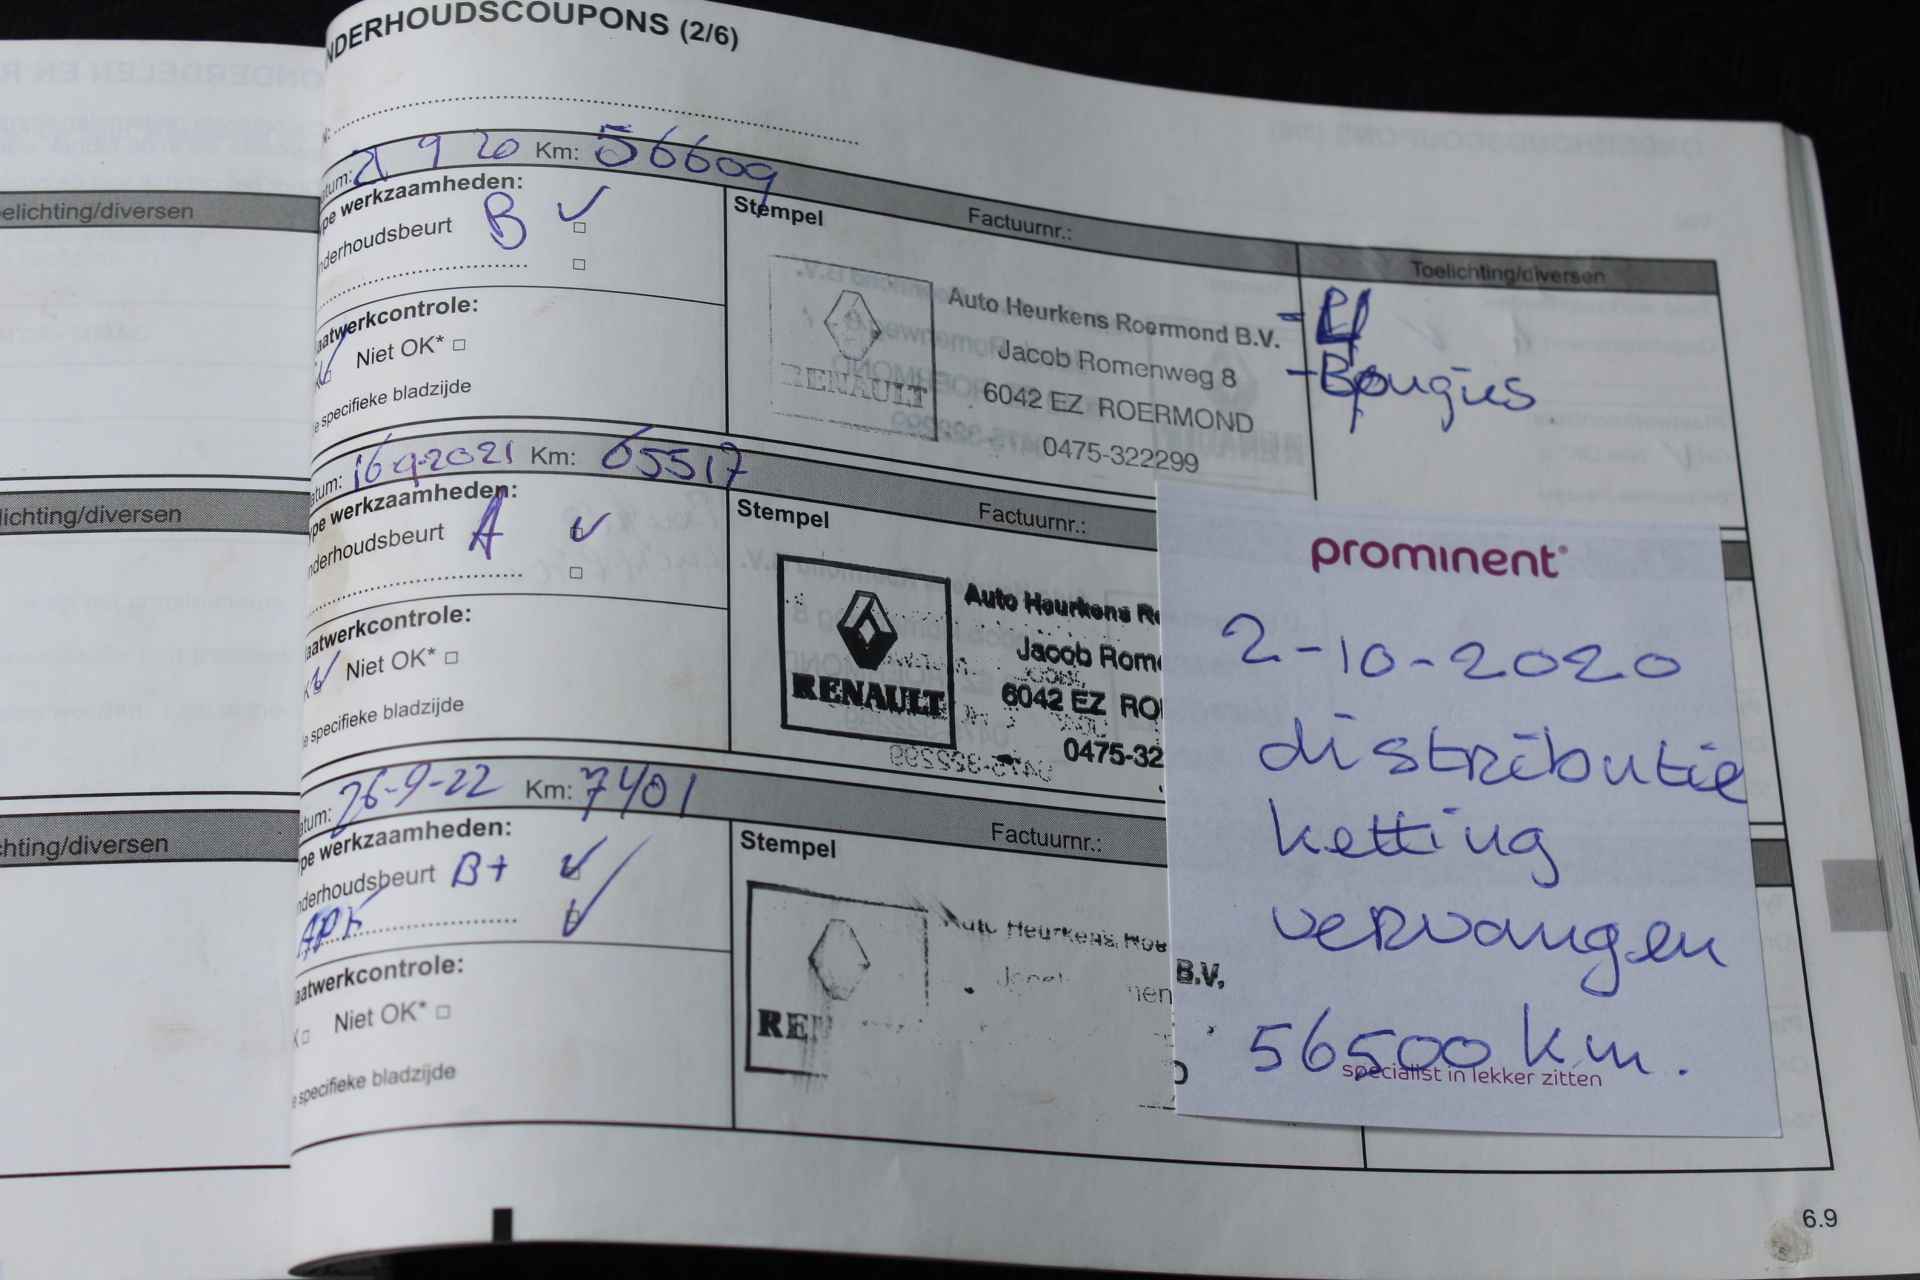 NDERHOUDSCOUPONS (2/6)
tum: 21 9 20 Km: 56609
pe werkzaamheden:
nderhoudsbeurt B ✓
Stempel
Factuurnr.:
Toelichting/diversen
Auto Heurkens Roermond B.V.
Jacob Romenweg 8
6042 EZ ROERMOND
0475-322299
RENAULT
- Bougies
aatwerkcontrole:
Niet OK*
e specifieke bladzijde
atum: 16-9-2021 Km: 65517
ype werkzaamheden:
nderhoudsbeurt A ✓
Stempel
Factuurnr.:
Auto Heurkens Ro
Jacob Rome
6042 EZ RO
0475-32
RENAULT
aatwerkcontrole:
Niet OK*
e specifieke bladzijde
atum: 26-9-22 Km: 7401
pe werkzaamheden:
nderhoudsbeurt B+ ✓
APK ✓
Stempel
Factuurnr.:
Auto Heurkens Roe
REN
B.V.
aatwerkcontrole:
Niet OK*
e specifieke bladzijde
prominent
2-10-2020
distributie
ketting
vervangen
56500 km.
specialist in lekker zitten
elichting/diversen
lichting/diversen
chting/diversen
6.9